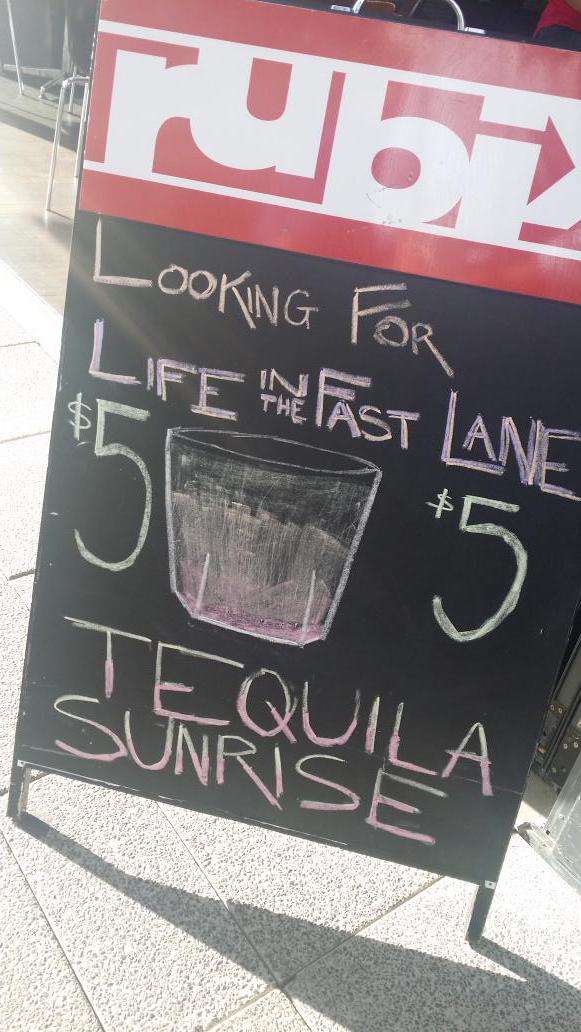 rubix
LOOKING FOR
LIFE IN THE FAST LANE
$5 $5
TEQUILA
SUNRISE